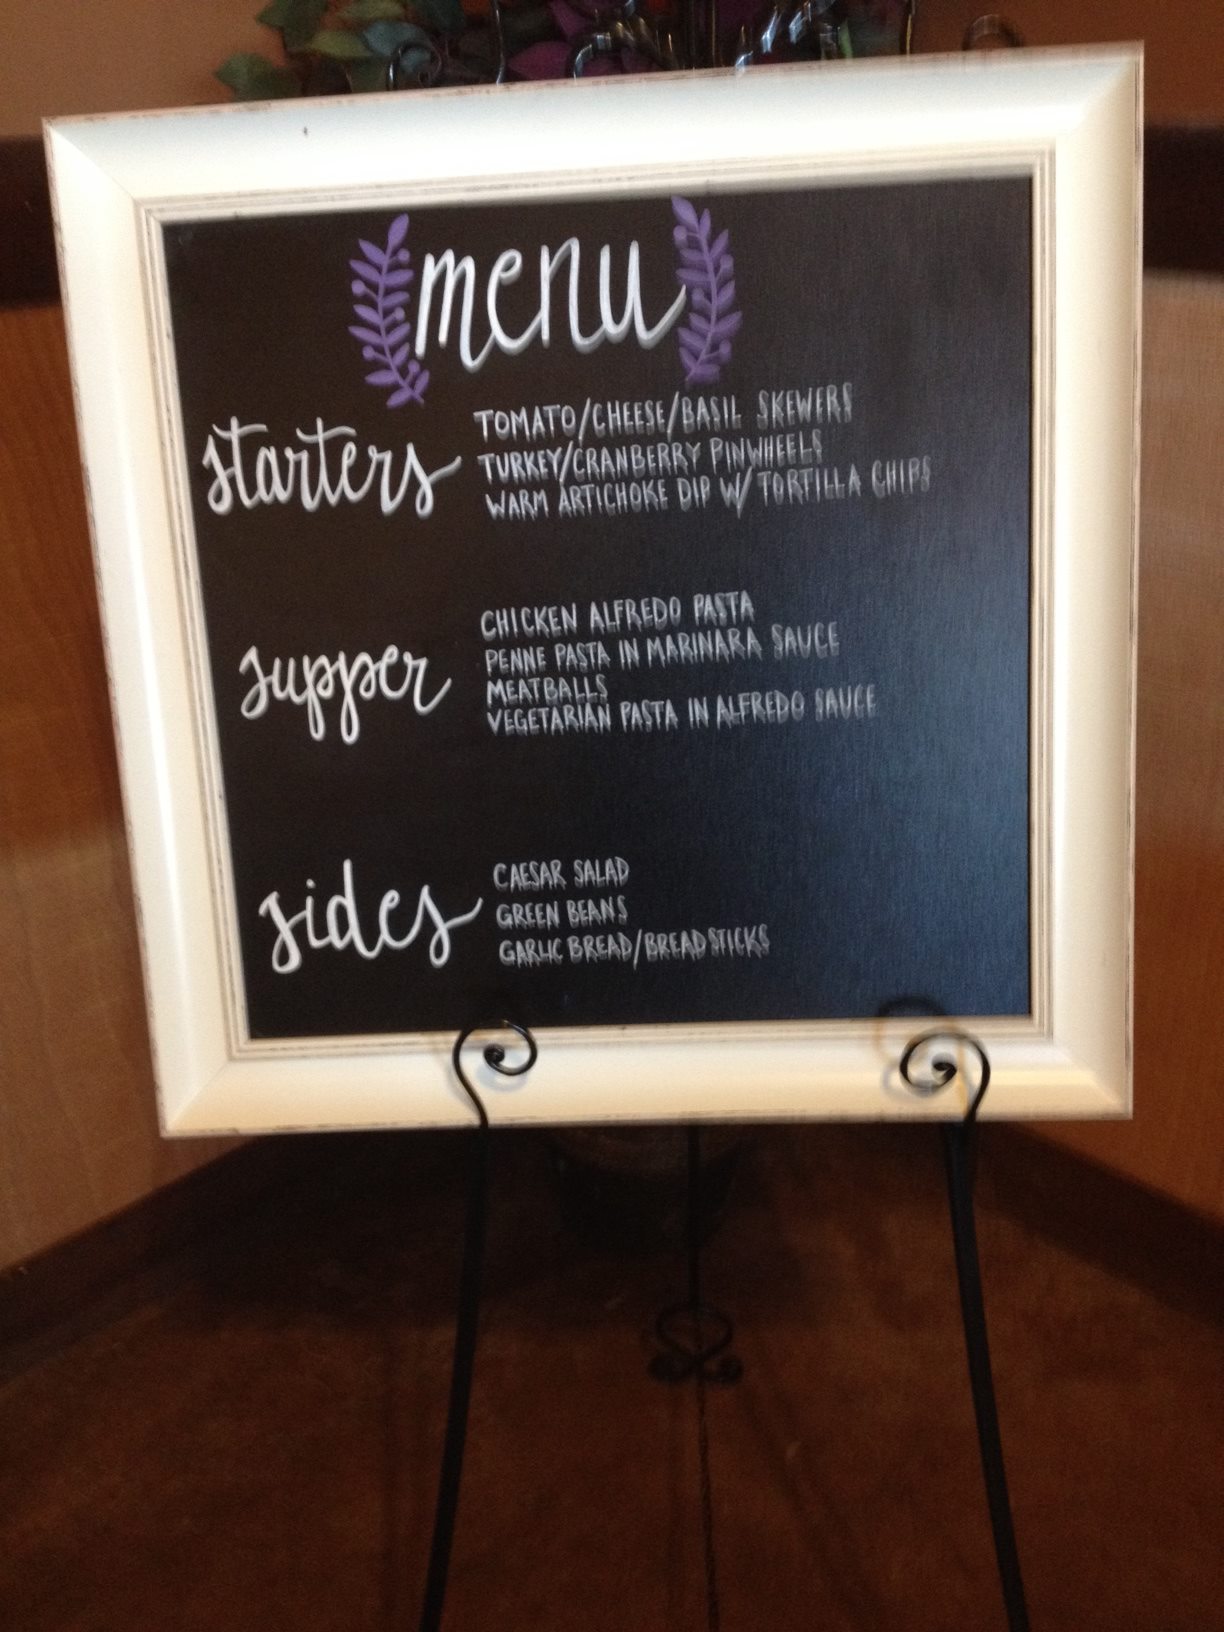 menu
starters
TOMATO/CHEESE/BASIL SKEWERS
TURKEY/CRANBERRY PINWHEELS
WARM ARTICHOKE DIP W/ TORTILLA CHIPS
supper
CHICKEN ALFREDO PASTA
PENNE PASTA IN MARINARA SAUCE
MEATBALLS
VEGETARIAN PASTA IN ALFREDO SAUCE
sides
CAESAR SALAD
GREEN BEANS
GARLIC BREAD/BREADSTICKS